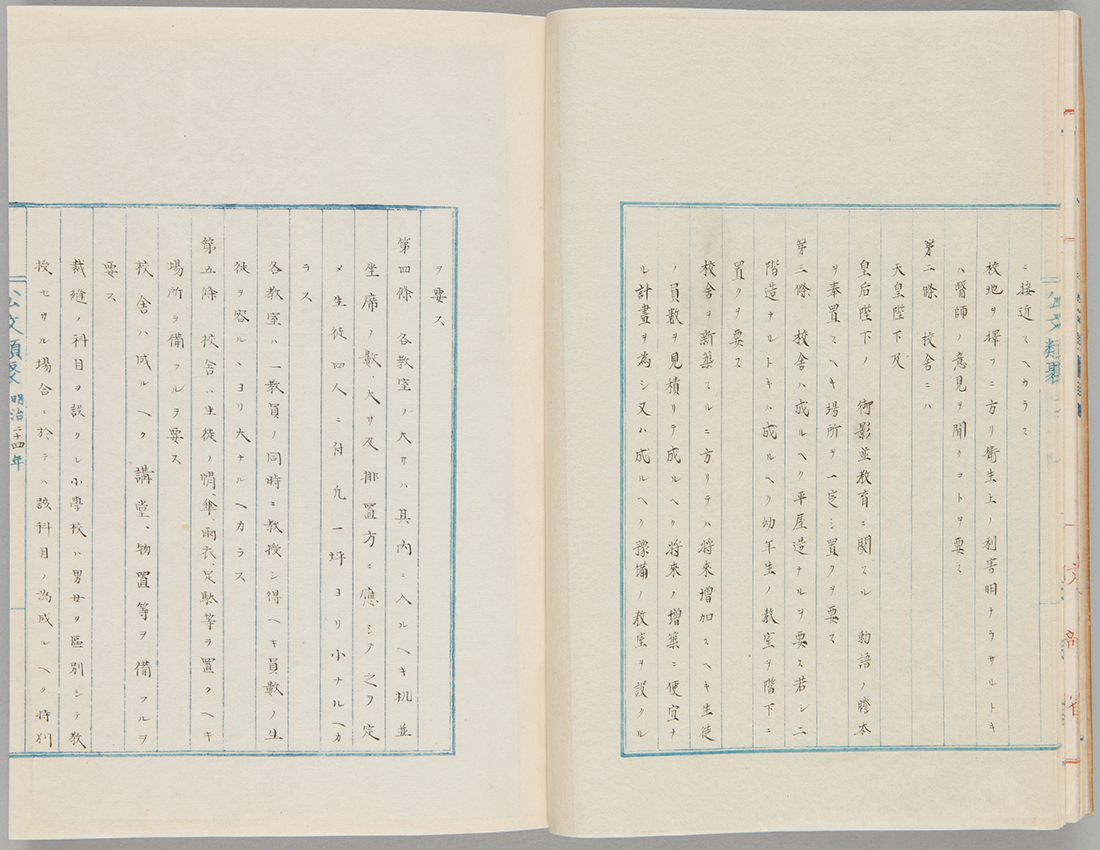 ニ接近スヘカラス
校地ヲ擇フニ方リ衛生上ノ利害明ナラサルトキ
ハ醫師ノ意見ヲ聞クコトヲ要ス
第二條 校舎ニハ
天皇陛下及
皇后陛下ノ 御影並教育ニ関スル 勅語ノ謄本
ヲ奉置スヘキ場所ヲ一定シ置クヲ要ス
第三條 校舎ハ成ルヘク平屋造ナルヲ要ス若シ二
階造ナルトキハ成ルヘク幼年生ノ教室ヲ階下ニ
置クヲ要ス
校舎ヲ新築スルニ方リテハ将來増加スヘキ生徒
ノ員數ヲ見積リテ成ルヘク将來ノ増築ニ便宜ナ
ル計畫ヲ為シ又ハ成ルヘク豫備ノ教室ヲ設クル
ヲ要ス
第四條 各教室ノ大サハ其内ニ入ルヘキ机並
坐席ノ數、大サ及排置方ニ應シテ之ヲ定
メ生徒四人ニ付凡一坪ヨリ小ナルヘカ
ラス
各教室ハ一教員ノ同時ニ教授シ得ヘキ員數ノ生
徒ヲ容ルヽヨリ大ナルヘカラス
第五條 校舎ハ生徒ノ帽、傘、雨衣、足駄等ヲ置クヘキ
場所ヲ備フルヲ要ス
校舎ハ成ルヘク講堂、物置等ヲ備フルヲ
要ス
裁縫ノ科目ヲ設クル小學校ハ男女ヲ區別シテ教
授セサル場合ニ於テハ該科目ノ為成ルヘク特別
公文類聚 明治二十四年
公文類聚
文部省